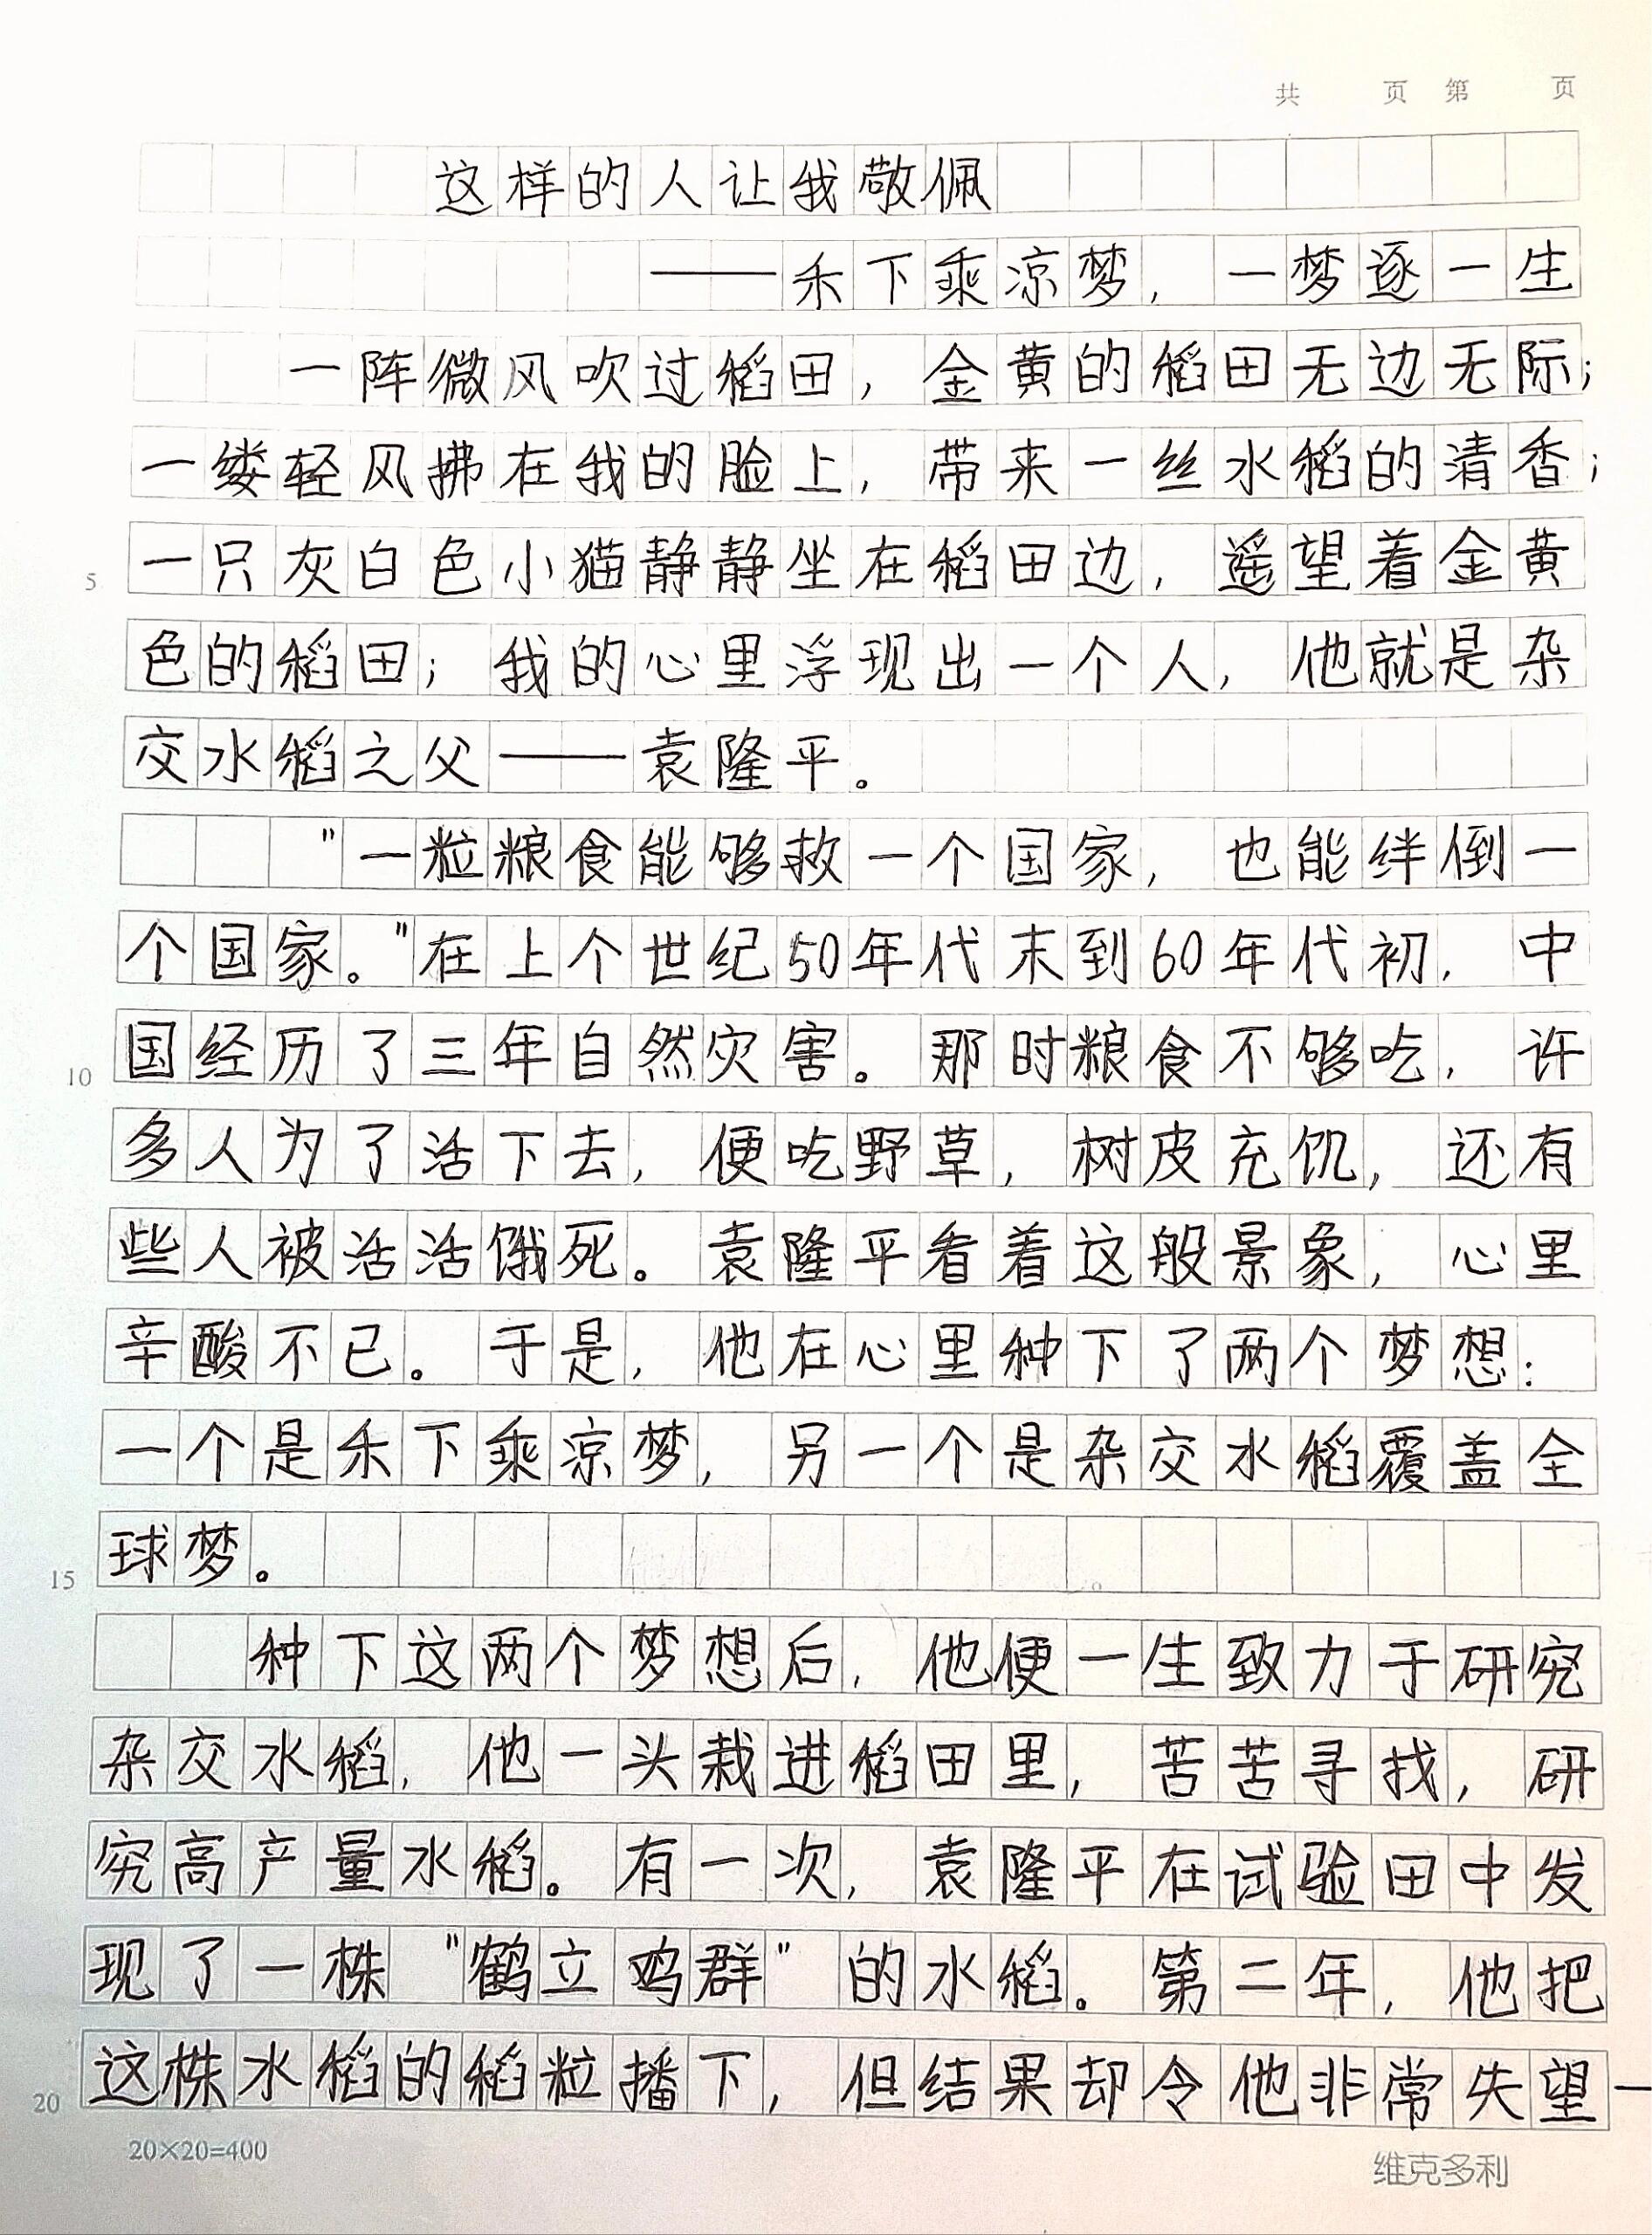 共 页 第 页
这样的人让我敬佩
——禾下乘凉梦，一梦逐一生
一阵微风吹过稻田，金黄的稻田无边无际；
一缕轻风拂在我的脸上，带来一丝水稻的清香；
一只灰白色小猫静静坐在稻田边，遥望着金黄
5
色的稻田；我的心里浮现出一个人，他就是杂
交水稻之父——袁隆平。
"一粒粮食能够救一个国家，也能绊倒一
个国家。"在上个世纪50年代末到60年代初，中
国经历了三年自然灾害。那时粮食不够吃，许
10
多人为了活下去，便吃野草，树皮充饥，还有
些人被活活饿死。袁隆平看着这般景象，心里
辛酸不已。于是，他在心里种下了两个梦想：
一个是禾下乘凉梦，另一个是杂交水稻覆盖全
球梦。
15
种下这两个梦想后，他便一生致力于研究
杂交水稻，他一头栽进稻田里，苦苦寻找，研
究高产量水稻。有一次，袁隆平在试验田中发
现了一株"鹤立鸡群"的水稻。第二年，他把
这株水稻的稻粒播下，但结果却令他非常失望—
20
20×20=400
维克多利